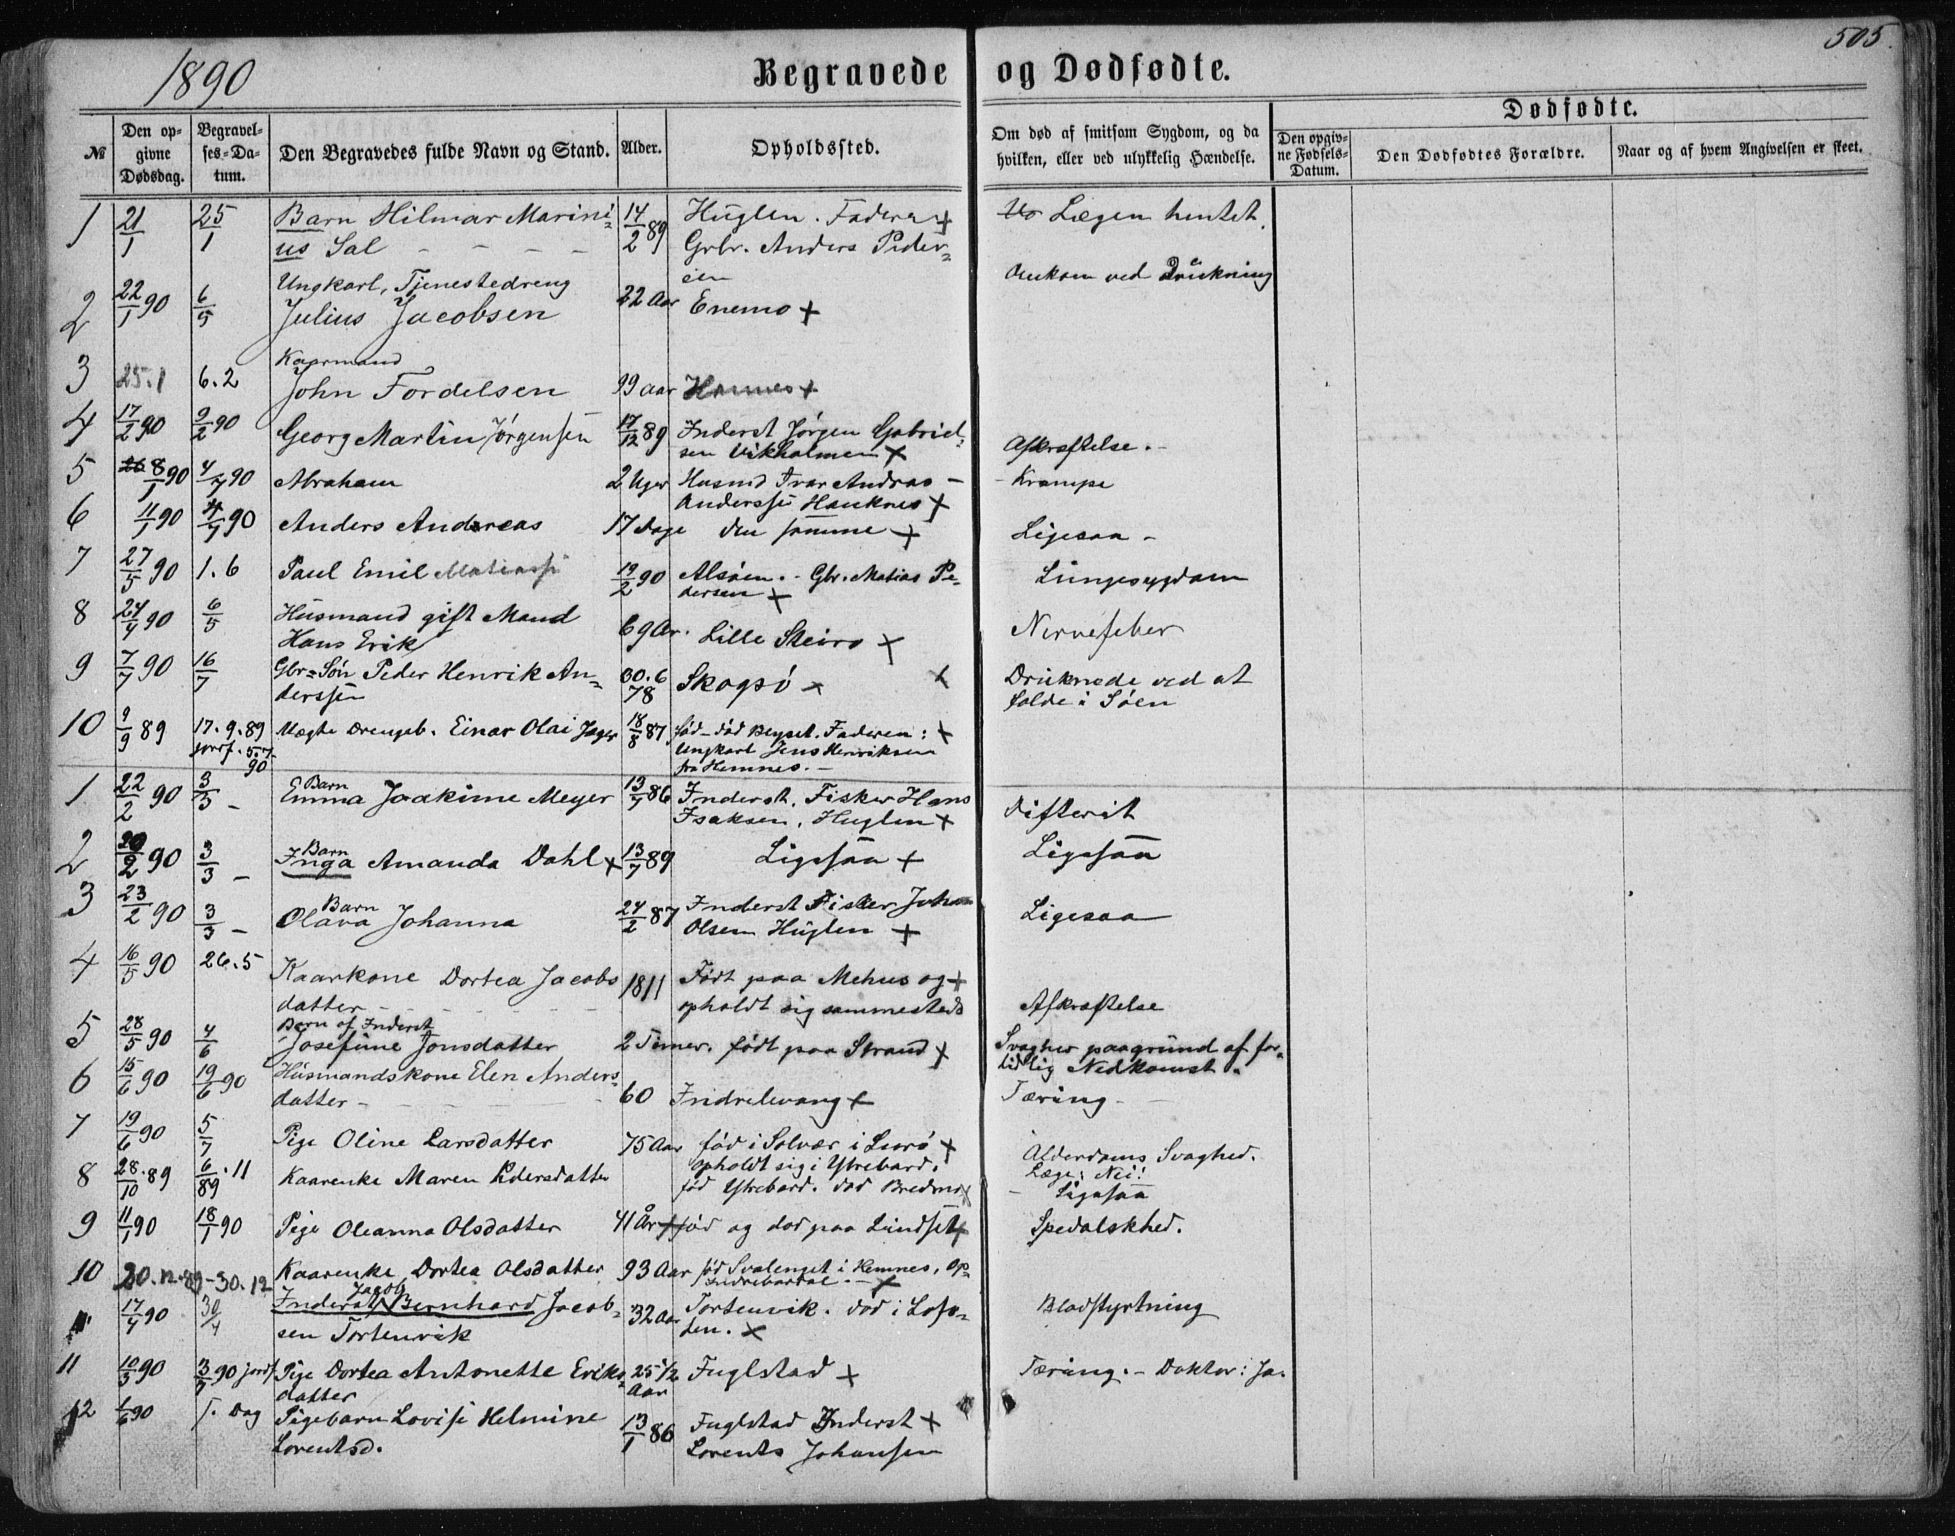 1890
505.
Begravede og Dødfødte.
№
Den opgivne Dødsdag.
Begravelses-Datum.
Den Begravedes fulde Navn og Stand.
Alder.
Opholdssted.
Om død af smitsom Sygdom, og da hvilken, eller ved ulykkelig Hændelse.
Dødfødte.
Den opgivne Fødsels-Datum.
Den Dødfødtes Forældre.
Naar og af hvem Angivelsen er skeet.
1 21/1 25/1 Barn Hilmar Marini- 14/2 89 Huglen. Faderen + Lægen hentet.
us Sal - - - - Grbr. Anders Peder-
sen
2 22/1 90 6/5 Ungkarl, Tjenestedreng 22 Aar Enemo + Omkom ved Drukning
Julius Jacobsen
3 25.1 6.2 Kaarmand
John Tordelsen 99 aar Hemnes +
4 17/2 90 9/2 90 Georg Martin Jørgensen 17/12 89 Inderst Jørgen Gabriel- Afkræftelse.
sen Vikholmen +
5 8/1 90 4/7 90 Abraham 2 Uger Husmd Ivar Andreas - Krampe
Anderssen Hauknes +
6 11/1 90 4/7 90 Anders Andreas 17 Dage den samme + Ligesaa -
7 27/5 90 1.6 Paul Emil Matiass 19/2 90 Alsøen. - Gbr. Matias Pe- Lungesygdom
dersen +
8 24/4 90 6/5 Husmand gift Mand
Hans Erik 69 Ar. Lille Steiro + Nervefeber
9 7/7 90 16/7 Gbr=Søn Peder Henrik An- 30.6 78 Skogsø + Druknede ved at
derssen falde i Søen
10 9/9 89 17.9.89 Uægte Drengeb. Einar Olai Jager 18/8 87 fød - død Bleyset. Faderen: +
jordf. 5.7. 90 Ungkarl Jens Henriksen
fra Hemnes. -
1 22/2 90 3/3 - Barn
Emma Joakime Meyer 13/7 86 Inderst, Fisker Hans Difterit
Isaksen, Huglen +
2 20/2 90 3/3 - Barn
Inga Amanda Dahl + 13/7 89 Ligesaa + Ligesaa
3 23/2 90 3/3 - Barn
Olava Johanna 24/2 87 Inderst Fisker Johan Ligesaa
Olsen Huglen +
4 16/5 90 26.5 Kaarkone Dortea Jacobs 1811 Født paa Mehus og +
datter - opholdt sig sammesteds Afkræftelse
5 28/5 90 4/6 Barn af Inderst
Josefine Jonsdatter 2 Timer. født paa Strand + Svaghed paagrund af for-
tidlig Nedkomst.
6 15/6 90 19/6 90 Husmandskone Elen Anders-
datter - 60 Indrelevang + Tæring -
7 19/6 90 5/7 Pige Oline Larsdatter 75 Aar fød i Solvær i Lurø + Alderdoms Svaghed.
opholdt sig i Ytrebard. Læge: Nei!
8 28/10 89 6/11 89 Kaarenke Maren Pedersdatter fød Ytrebard. død Bredmo x - Ligesaa
9 11/1 90 18/1 90 Pige Oleanna Olsdatter 41 År + fød og død paa Lindset + Spedalskhed.
10 20.12.89 - 30.12 Kaarenke Dortea Olsdatter 93 Aar fød Svalenget i Hemnes, Op-
Indrebardal. - +
17/4 90 30/4 Inderst Jacob Bernhard Jacob- 32 aar Tortenvik. død i Lofo- Blodstyrtning
sen Tortenvik ten. +
11 10/3 90 3/7 90 jordf. Pige Dortea Antonette Eriks- 25 1/2 Aar Fuglstad + Tæring. - Doktor: Ja.
datter
12 6/6 90 S. Dag Pigebarn Lovise Helmine 13/1 86 Fuglstad Inderst +
Lorentsd. Lorents Johansen